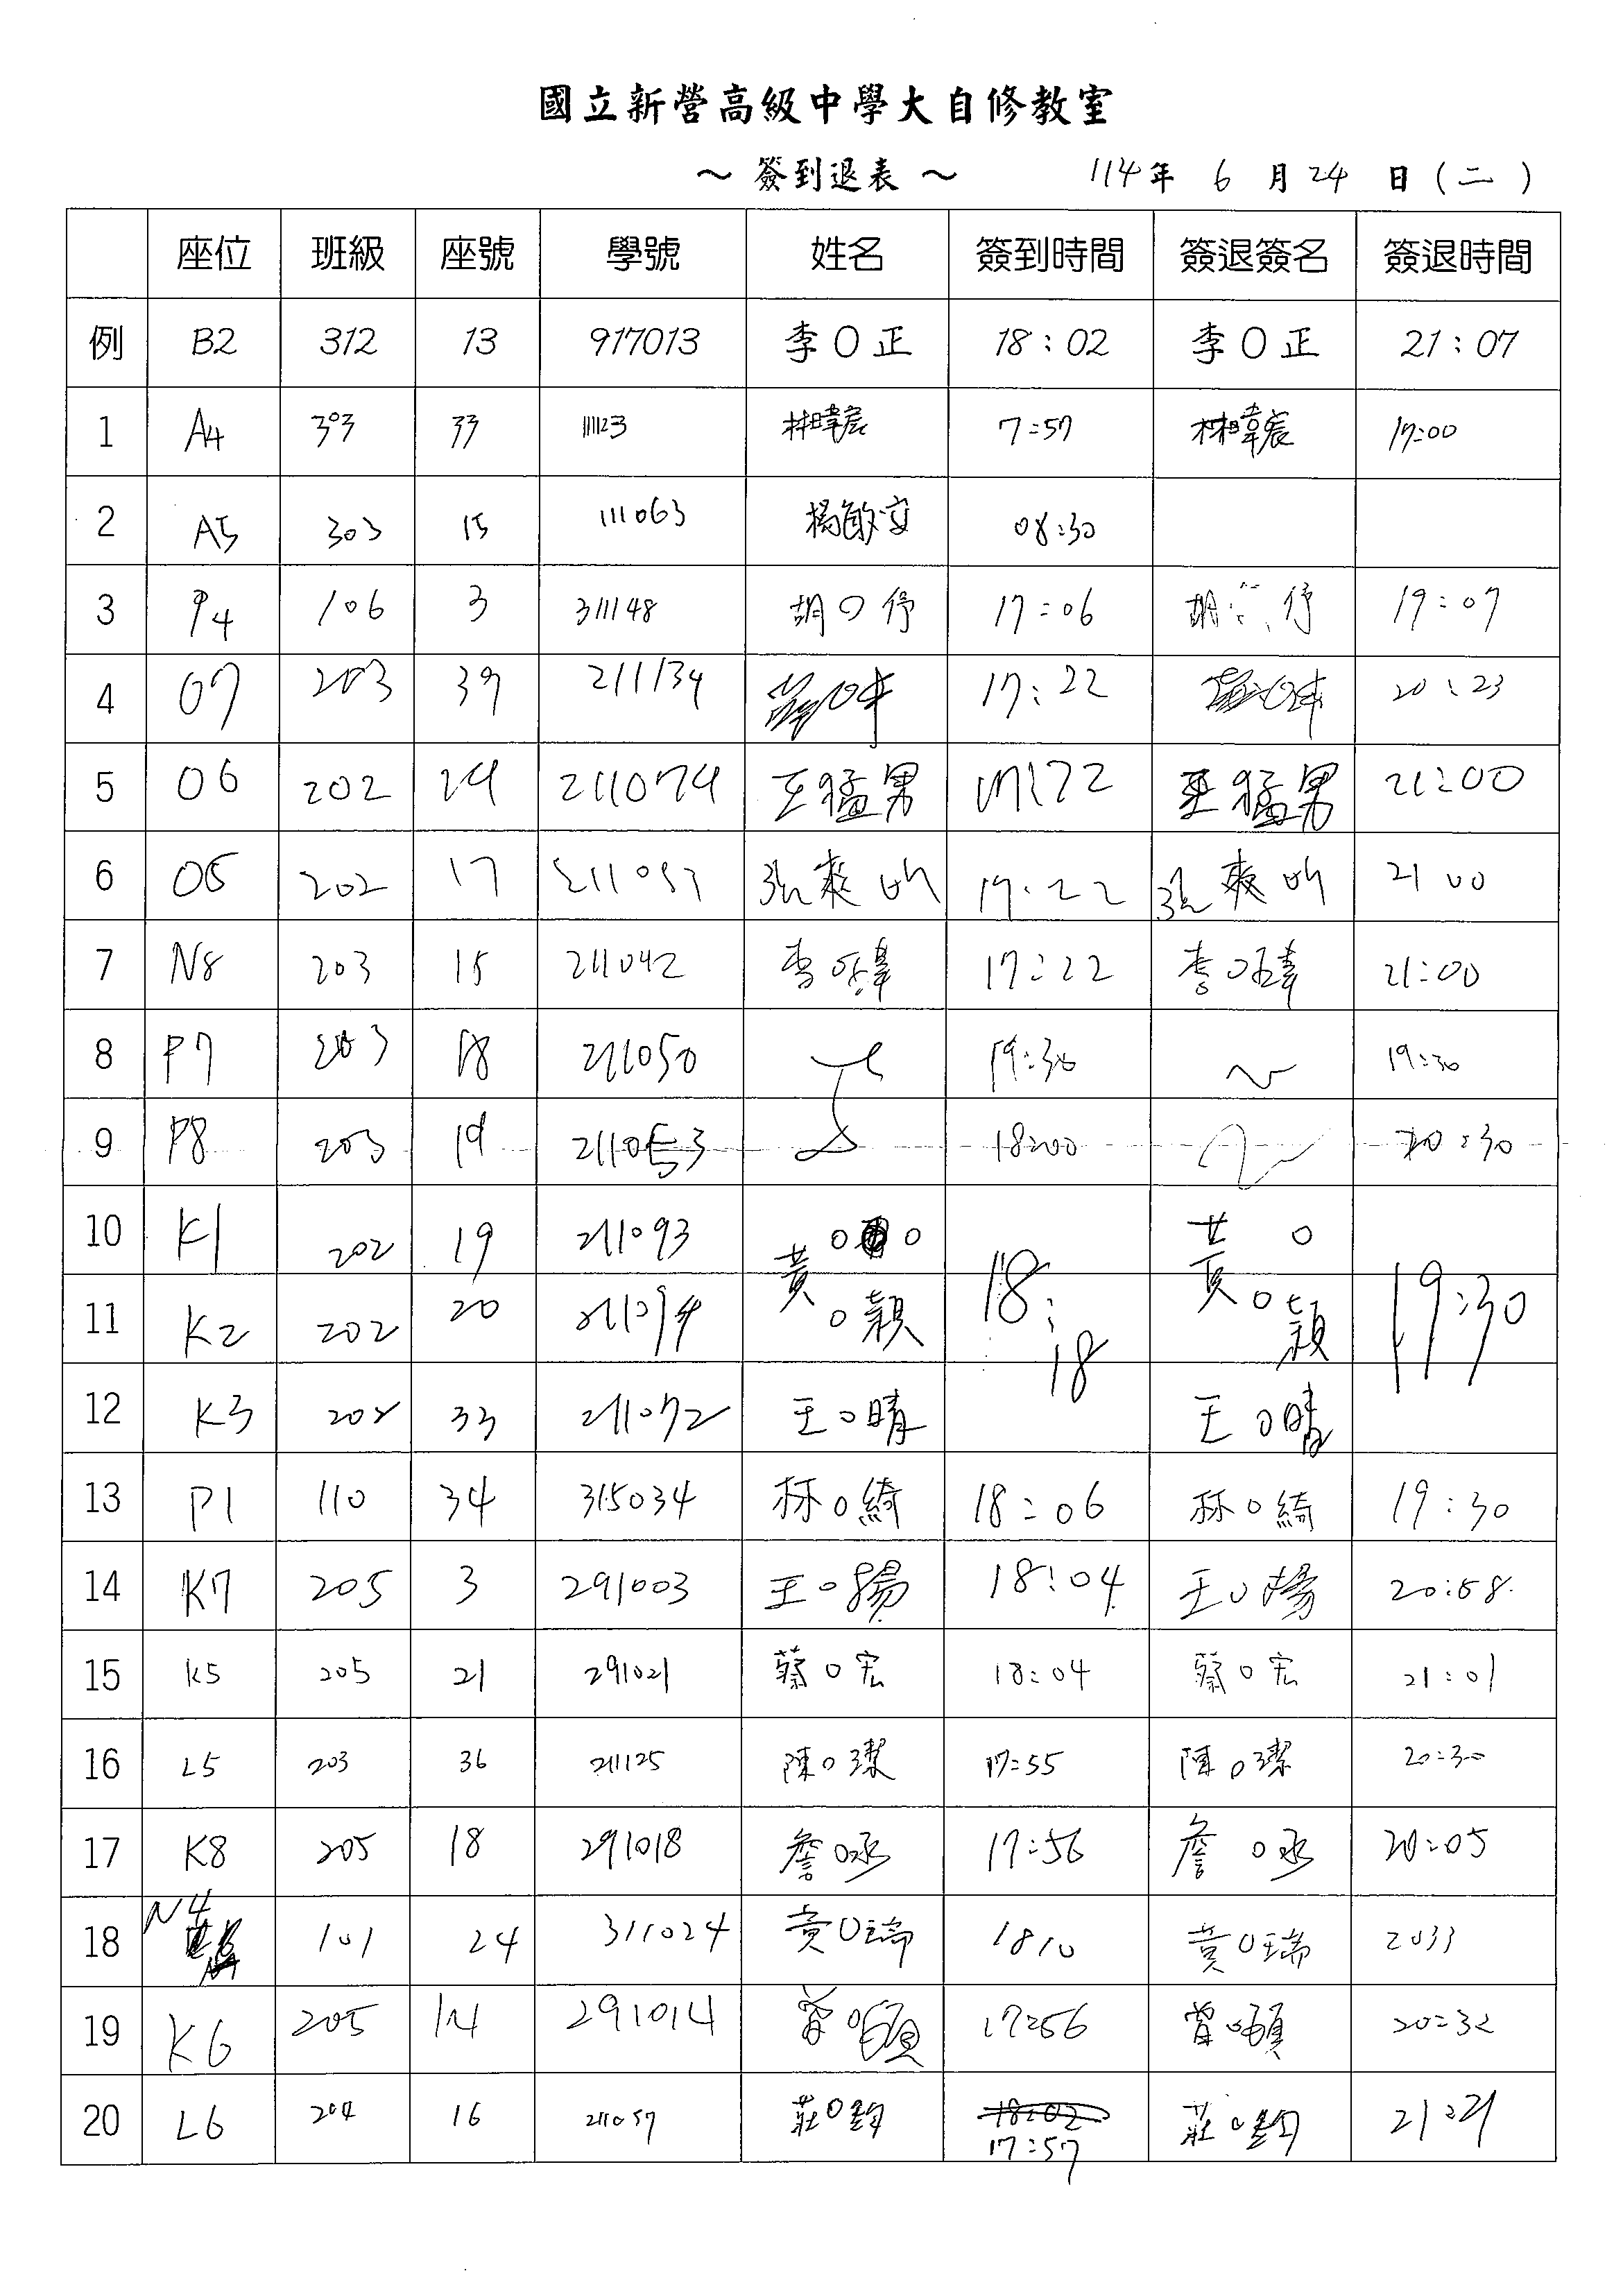 國立新營高級中學大自修教室
～ 簽到退表 ～ 114年 6 月 24 日 (二)
座位 班級 座號 學號 姓名 簽到時間 簽退簽名 簽退時間
例 B2 312 13 917013 李O正 18:02 李O正 21:07
1 A4 303 33 111123 林暐宸 7:57 林暐宸 17:00
2 A5 303 15 111063 楊 08:30
3 P4 106 3 311148 胡O伃 17:06 胡 伃 19:07
4 O7 203 39 211134 17:22 20:23
5 O6 202 24 211074 王猛男 王猛男 21:00
6 O5 202 17 張爽 17:22 張爽 21 00
7 N8 203 15 211042 李O 17:22 李O 21:00
8 P7 203 18 211050 19:30 19:30
9 P8 203 19 18:00 20:30
10 K1 202 19 211093 黃 O O 18:18 黃 O 19:30
11 K2 202 20 211094 O穎 O穎
12 K3 202 33 211072 王O晴 王O晴
13 P1 110 34 315034 林O綺 18:06 林O綺 19:30
14 K7 205 3 291003 王O揚 18:04 王O揚 20:58
15 K5 205 21 291021 蔡O宏 18:04 蔡O宏 21:01
16 L5 203 36 211125 陳O潔 17:55 陳O潔 20:30
17 K8 205 18 291018 詹O丞 17:56 詹O丞 20:05
18 N4 101 24 311024 黃O瑞 1810 黃O瑞 2033
19 K6 205 14 291014 曾O碩 17:56 曾O碩 20:32
20 L6 204 16 211057 莊O鈞 18:02 莊O鈞 21:21
17:57